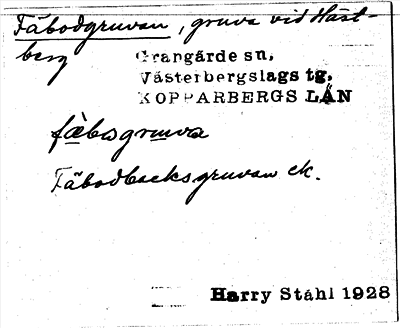 Fäbodgruvan, gruva vid Häst-
berg
Grangärde sn,
Västerbergslags tg,
KOPPARBERGS LÄN
fæbusgruva
Fäbodbacksgruvan ek.
Harry Ståhl 1928